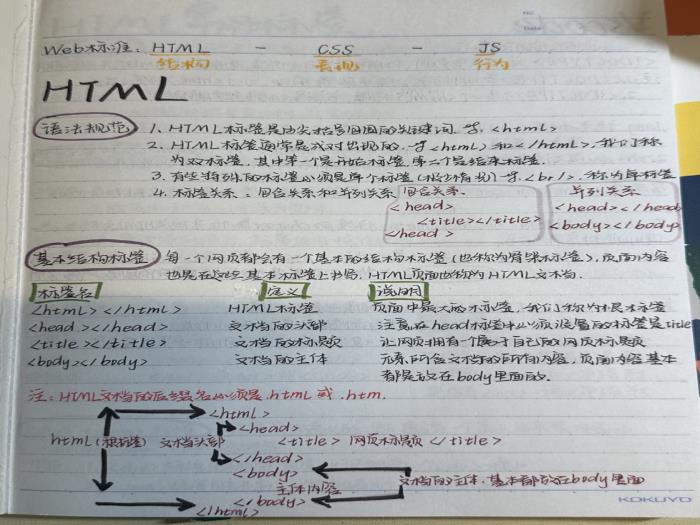 Web标准: HTML - CSS - JS
结构 表现 行为
HTML
语法规范 1、HTML标签是由尖括号包围的关键词,学,<html>
2、HTML标签通常是成对出现的,学<html>和</html>,我们称
为双标签,其中第一个是开始标签,第二个是结束标签.
3、有些特殊的标签必须是单个标签(极少情况)学.<br/>,称为单标签
4、标签关系:包含关系和并列关系
包含关系. 并列关系
<head> <head></head>
<title></title> <body></body>
</head>
基本结构标签 每一个网页都会有一个基本的结构标签(也称为骨架标签),页面内容
也是在这些基本标签上书写. HTML页面也称为HTML文档.
标签名 定义 说明
<html></html> HTML标签 页面中最大的标签,我们称为根标签
<head></head> 文档的头部 注意在head标签中必须设置的标签是title
<title></title> 文档的标题 让网页拥有一个属于自己的网页标题
<body></body> 文档的主体 元素所含文档的所有内容,页面内容基本
都是放在body里面的.
注:HTML文档的后缀名必须是.html或.htm.
<html>
<head>
html(根标签) 文档头部 <title> 网页标题 </title>
</head>
<body>
主体内容 文档的主体.基本都放在body里面
</body>
</html>
KOKUYO